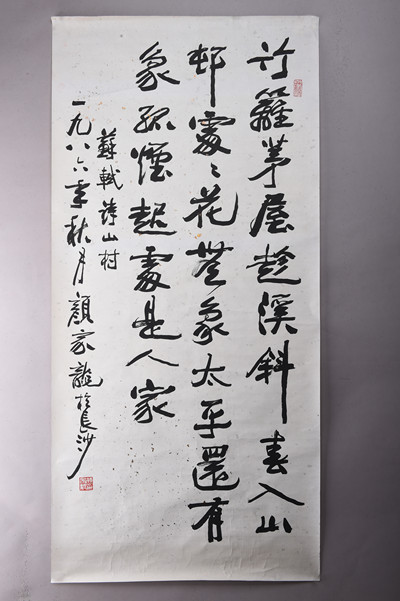 竹籬茅屋趁溪斜春入山
邨處々花無象太平還有
象孤煙起處是人家
蘇軾詩山村
一九八六年秋月顏家龍於長沙